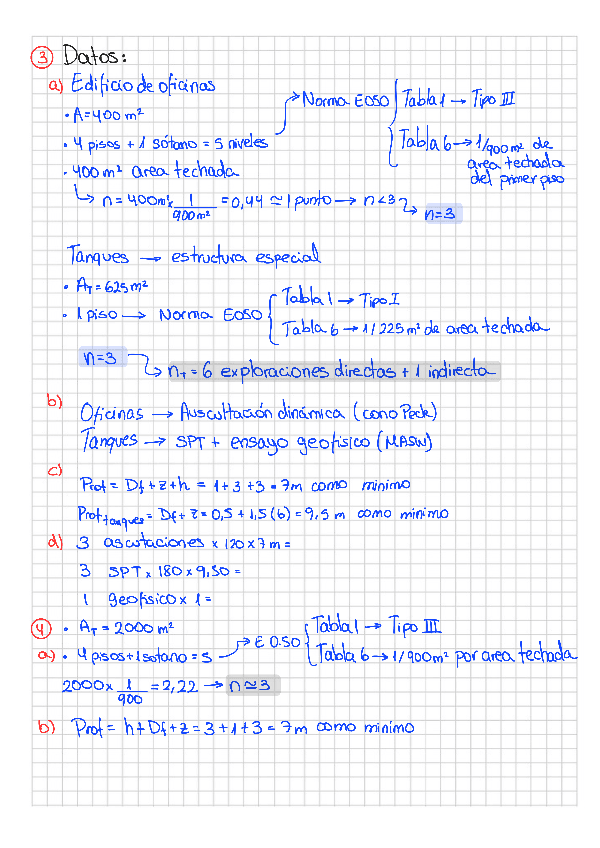 ③ Datos:
a) Edificio de oficinas
• A=400 m²
• 4 pisos + 1 sótano = 5 niveles → Norma E050 { Tabla 1 → Tipo III
Tabla 6 → 1/900 m² de area techada del primer piso
• 400 m² area techada
↳ n = 400m² x 1/900m² = 0,44 ≃ 1 punto → n<3 ↳ n=3
Tanques → estructura especial
• A_T = 625 m²
• 1 piso → Norma E050 { Tabla 1 → Tipo I
Tabla 6 → 1/225 m² de area techada
n=3 ↳ n_T = 6 exploraciones directas + 1 indirecta
b) Oficinas → Auscultación dinámica (cono Peck)
Tanques → SPT + ensayo geofisico (MASW)
c) Prof = Df + z + h = 1+3+3 = 7m como minimo
Prof tanques = Df + z = 0,5 + 1,5 (6) = 9,5 m como minimo
d) 3 ascutaciones x 120 x 7 m =
3 SPT x 180 x 9,50 =
1 geofisico x 1 =
④ • A_T = 2000 m²
a) • 4 pisos + 1 sotano = 5 → E 0.50 { Tabla 1 → Tipo III
Tabla 6 → 1/900m² por area techada
2000 x 1/900 = 2,22 → n ≃ 3
b) Prof = h + Df + z = 3 + 1 + 3 = 7m como minimo